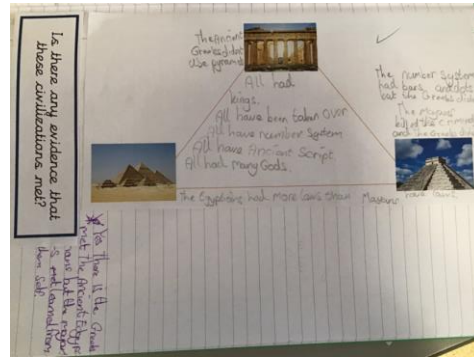 Is there any evidence that
these civilisations met?
The Ancient
Greeks didnt
use pyramid
All had
kings.
All have been taken over
All have number System
All have Ancient Script
All had many Gods.
The number system
had bars and dots
but the Greeks didn
The Mayans
and the Greeks
The Egyptians had more laws than Mayans have laws.
Yes There is the Greeks
met The Ancient Egypt
ians but the mayan